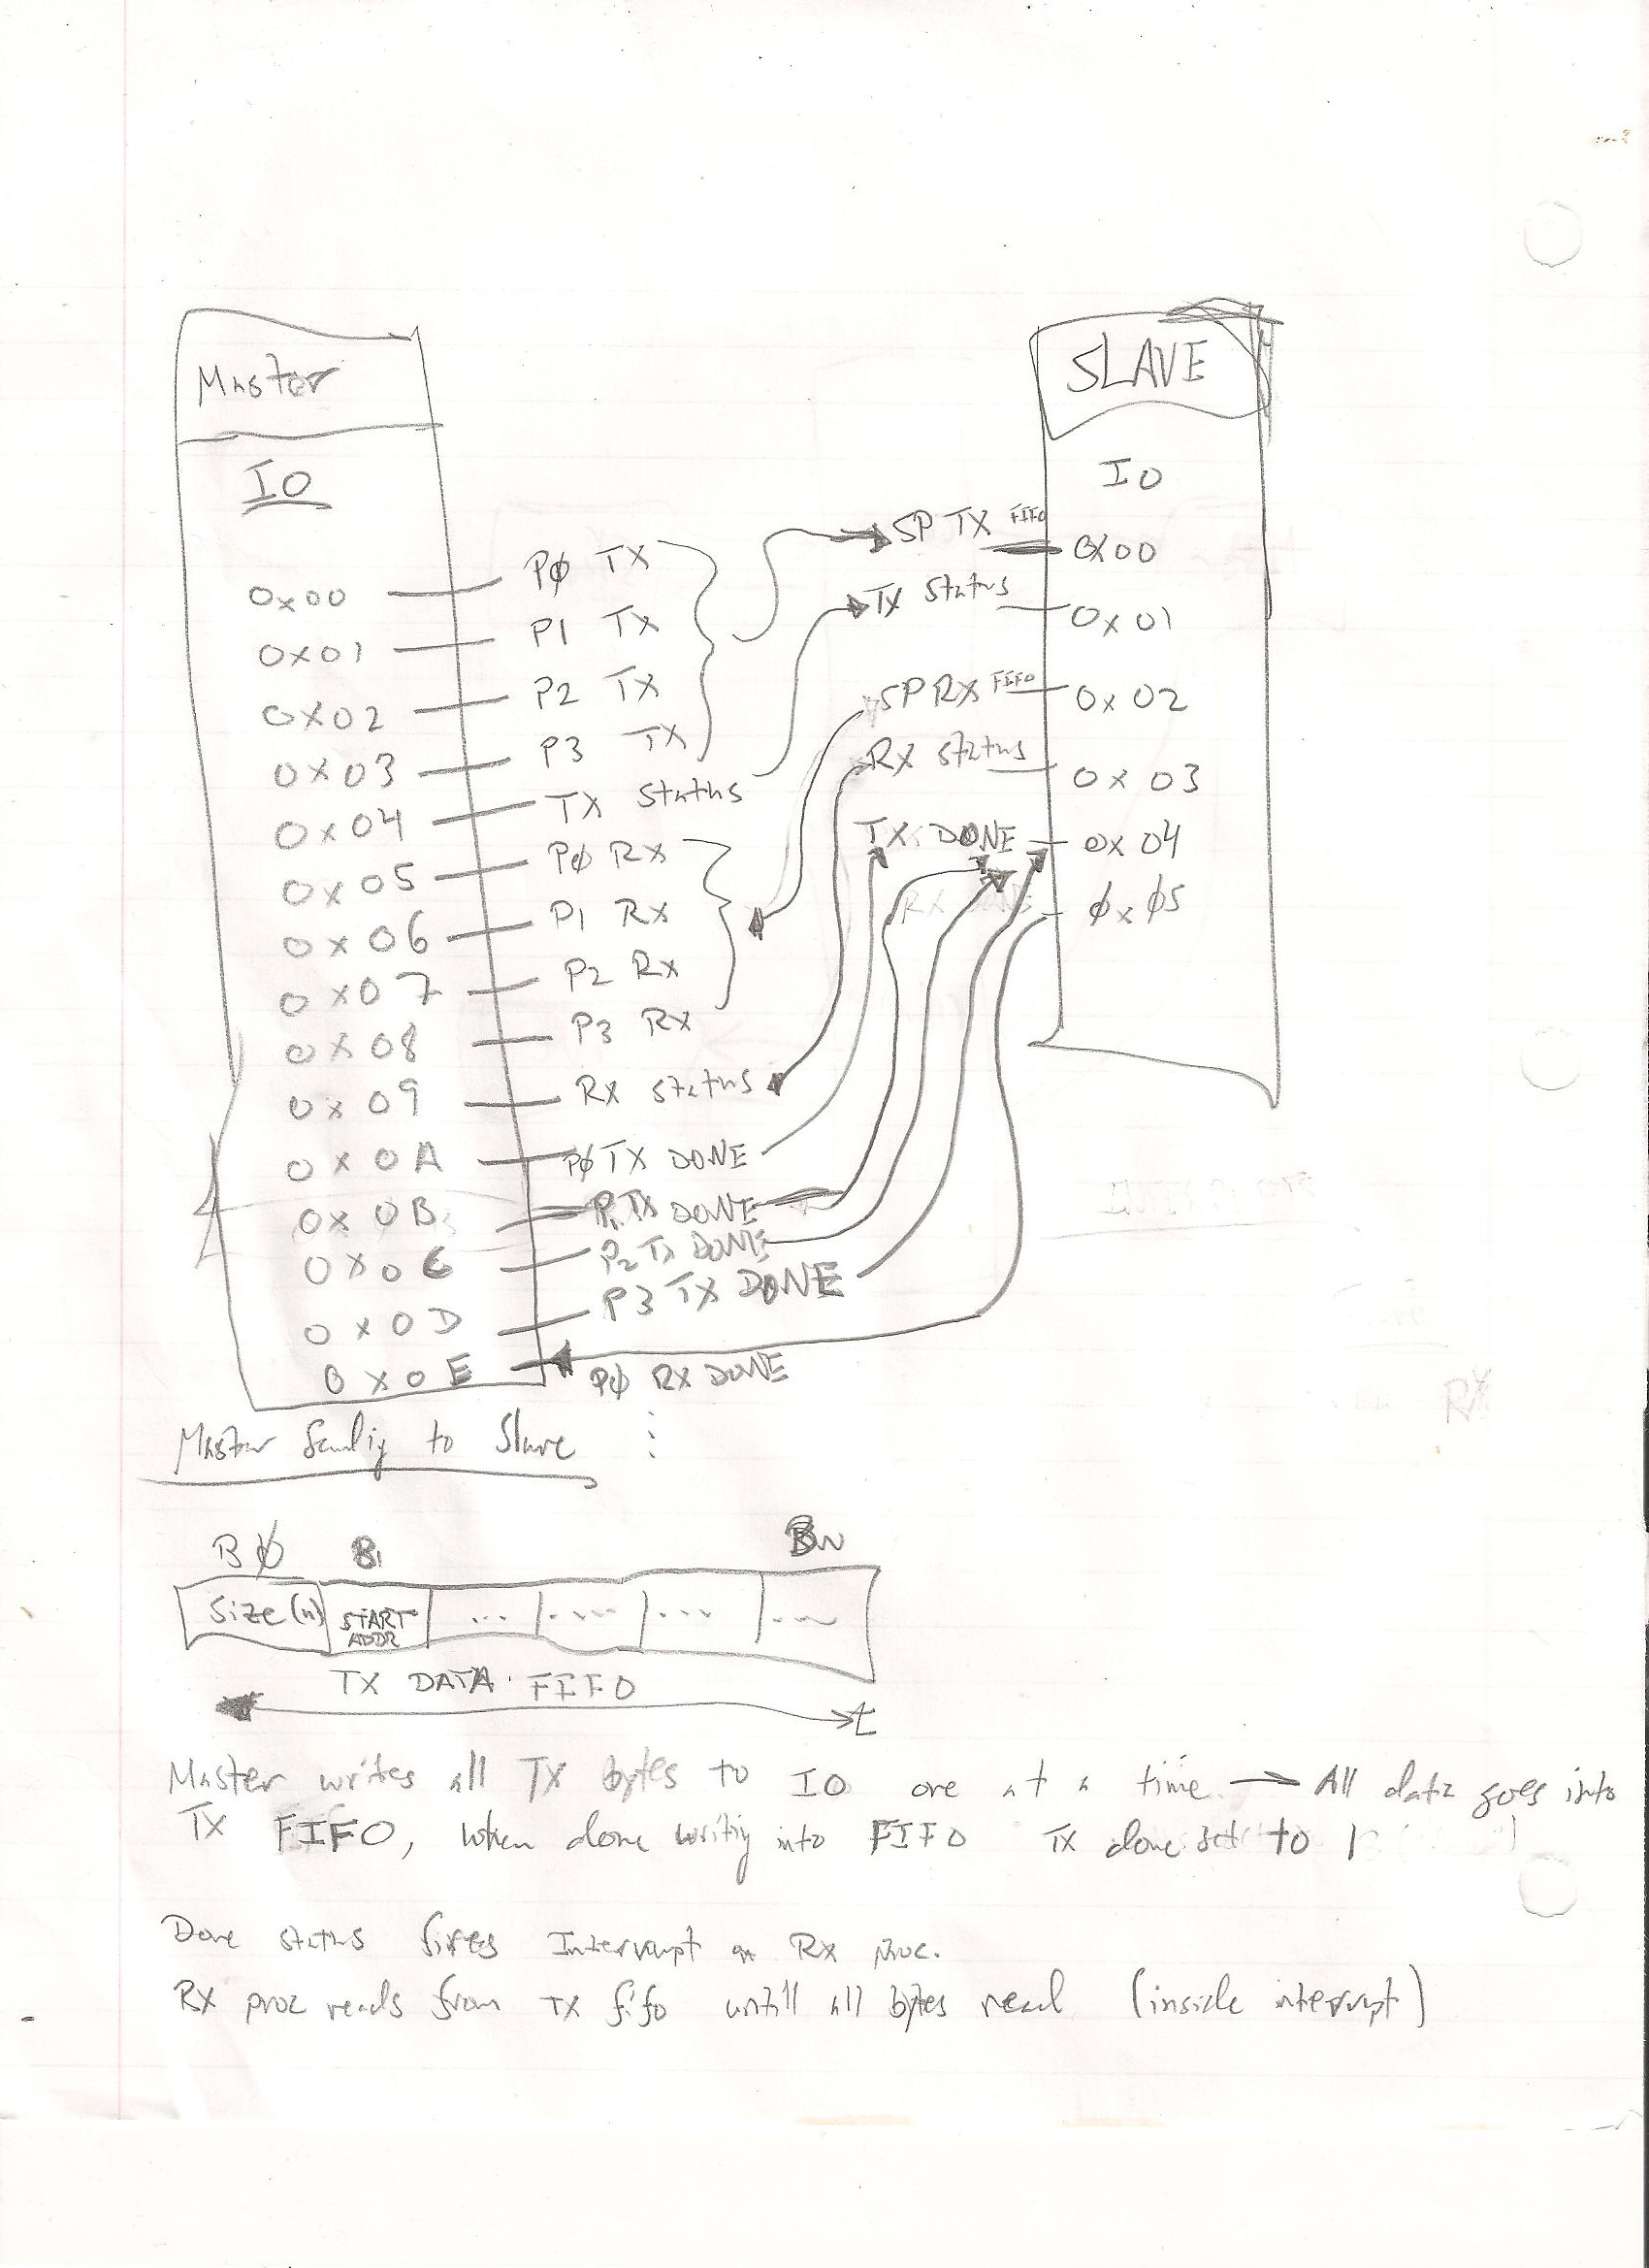 Master
SLAVE
IO
IO
0x00 P0 TX
0x01 P1 TX
0x02 P2 TX
0x03 P3 TX
0x04 TX status
0x05 P0 RX
0x06 P1 RX
0x07 P2 RX
0x08 P3 RX
0x09 RX status
0x0A P0 TX DONE
0x0B P1 TX DONE
0x0C P2 TX DONE
0x0D P3 TX DONE
0x0E P0 RX DONE
SP TX FIFO 0x00
TX status 0x01
SP RX FIFO 0x02
RX status 0x03
TX DONE 0x04
RX DONE 0x05
Master sending to Slave
B0 B1 BN
Size(n) START ADDR ... ... ... ...
TX DATA FIFO
t
Master writes all TX bytes to IO one at a time → All data goes into
TX FIFO, when done writing into FIFO TX done set to 1
Done status fires Interrupt on Rx proc.
RX proc reads from TX fifo untill all bytes read (inside interrupt)